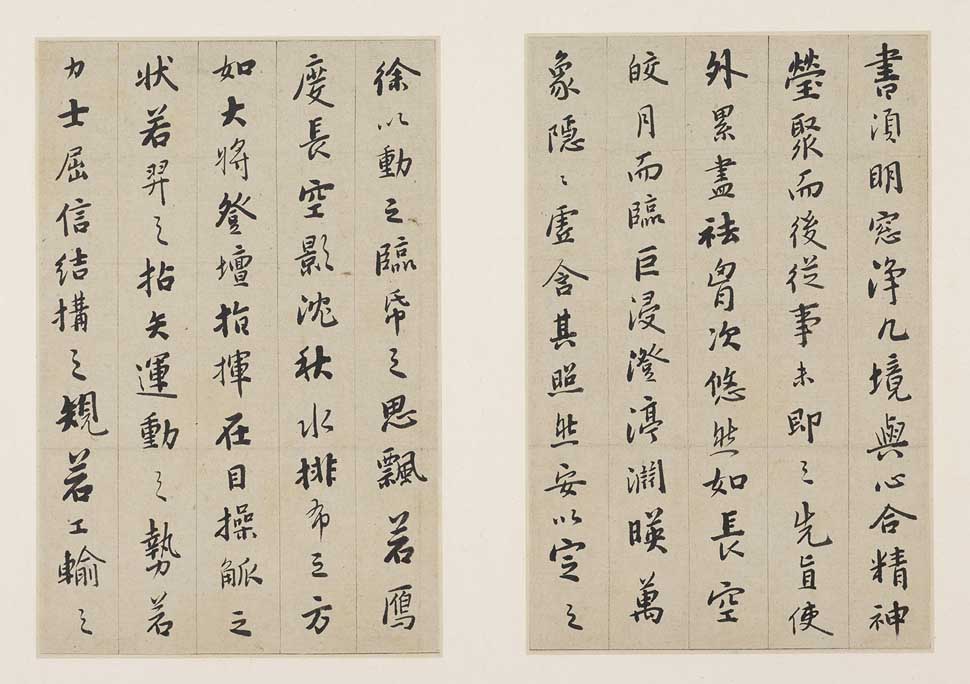 書須明窓浄几境與心合精神
瑩聚而後從事未即之先旨使
外累盡祛胷次悠然如長空
皎月而臨巨浸澄渟淵暎萬
象隱〻虛含其照然安以定之
徐以動之臨帋之思飄若鴈
度長空影沈秋水排布之方
如大将登壇指揮在目操觚之
状若羿之拈矢運動之勢若
力士屈信結搆之䂓若工輸之